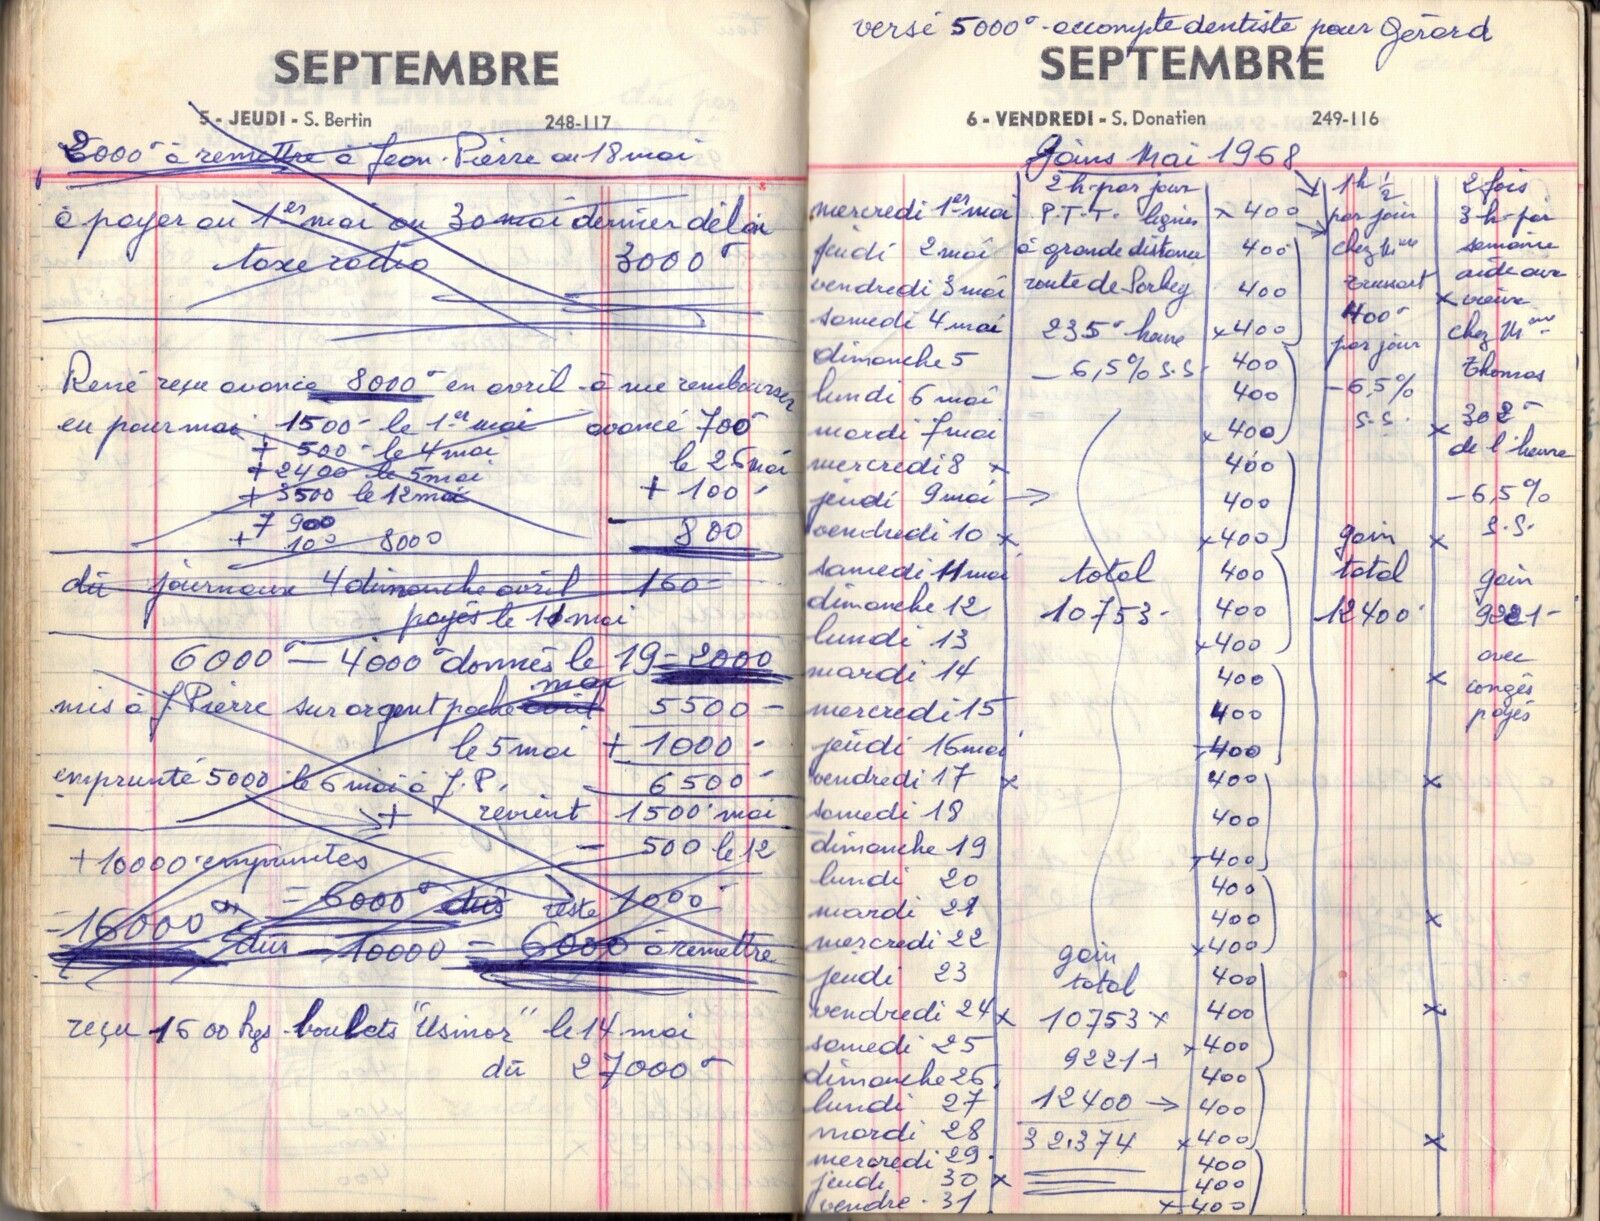 SEPTEMBRE
5 - JEUDI - S. Bertin 248-117
2000 à remettre à Jean-Pierre au 18 mai
à payer au 1er mai ou 30 mai dernier délai
taxe radio 3000
René reçu avance 8000 en avril - à me rembourser
en pour mai 1500 le 1er mai avancé 700
+ 500 le 4 mai le 26 mai
+ 2400 le 5 mai + 100
+ 3500 le 12 mai
7 900 800
+ 100 8000
dû journaux 4 dimanche avril 160-
payés le 11 mai
6000 - 4000 donnés le 19 - 2000
mai
mis à J Pierre sur argent poche 5500 -
le 5 mai + 1000 -
emprunté 5000 le 6 mai à J.P. 6500
+ revient 1500 mai
+ 10000 empruntés - 500 le 12
= 6000 dûs reste 1000
= 16000 dûs - 10000 = 6000 à remettre
reçu 1600 kgs boulets "Usinor" le 14 mai
dû 27000
versé 5000 - accompte dentiste pour Gérard
SEPTEMBRE
6 - VENDREDI - S. Donatien 249-116
Gains Mai 1968
2 h par jour 1 h ½ 2 fois
mercredi 1er mai P.T.T. lignes x 400 par jour 3 h par
jeudi 2 mai à grande distance 400 chez Mme semaine
vendredi 3 mai route de Sorbey 400 aide aux
samedi 4 mai 235 heure x 400 400 x vieux
par jour chez Mme
dimanche 5 - 6,5% S.S. 400 Thomas
lundi 6 mai 400 - 6,5%
mardi 7 mai x 400 S.S. x 302
mercredi 8 x 400 de l'heure
jeudi 9 mai → 400 - 6,5%
vendredi 10 x x 400 gain x S.S.
samedi 11 mai total 400 total gain
dimanche 12 10753 - 400 12400 9221 -
lundi 13 x 400 avec
mardi 14 400 x congés
mercredi 15 400 payés
jeudi 16 mai 400
vendredi 17 x 400 x
samedi 18 400
dimanche 19 400
lundi 20 400
mardi 21 400 x
mercredi 22 gain x 400
jeudi 23 total 400
vendredi 24 x 10753 x 400 x
samedi 25 9221 + x 400
dimanche 26 400
lundi 27 12400 → 400
mardi 28 32.374 x 400 x
mercredi 29 400
jeudi 30 x 400
vendre. 31 x 400